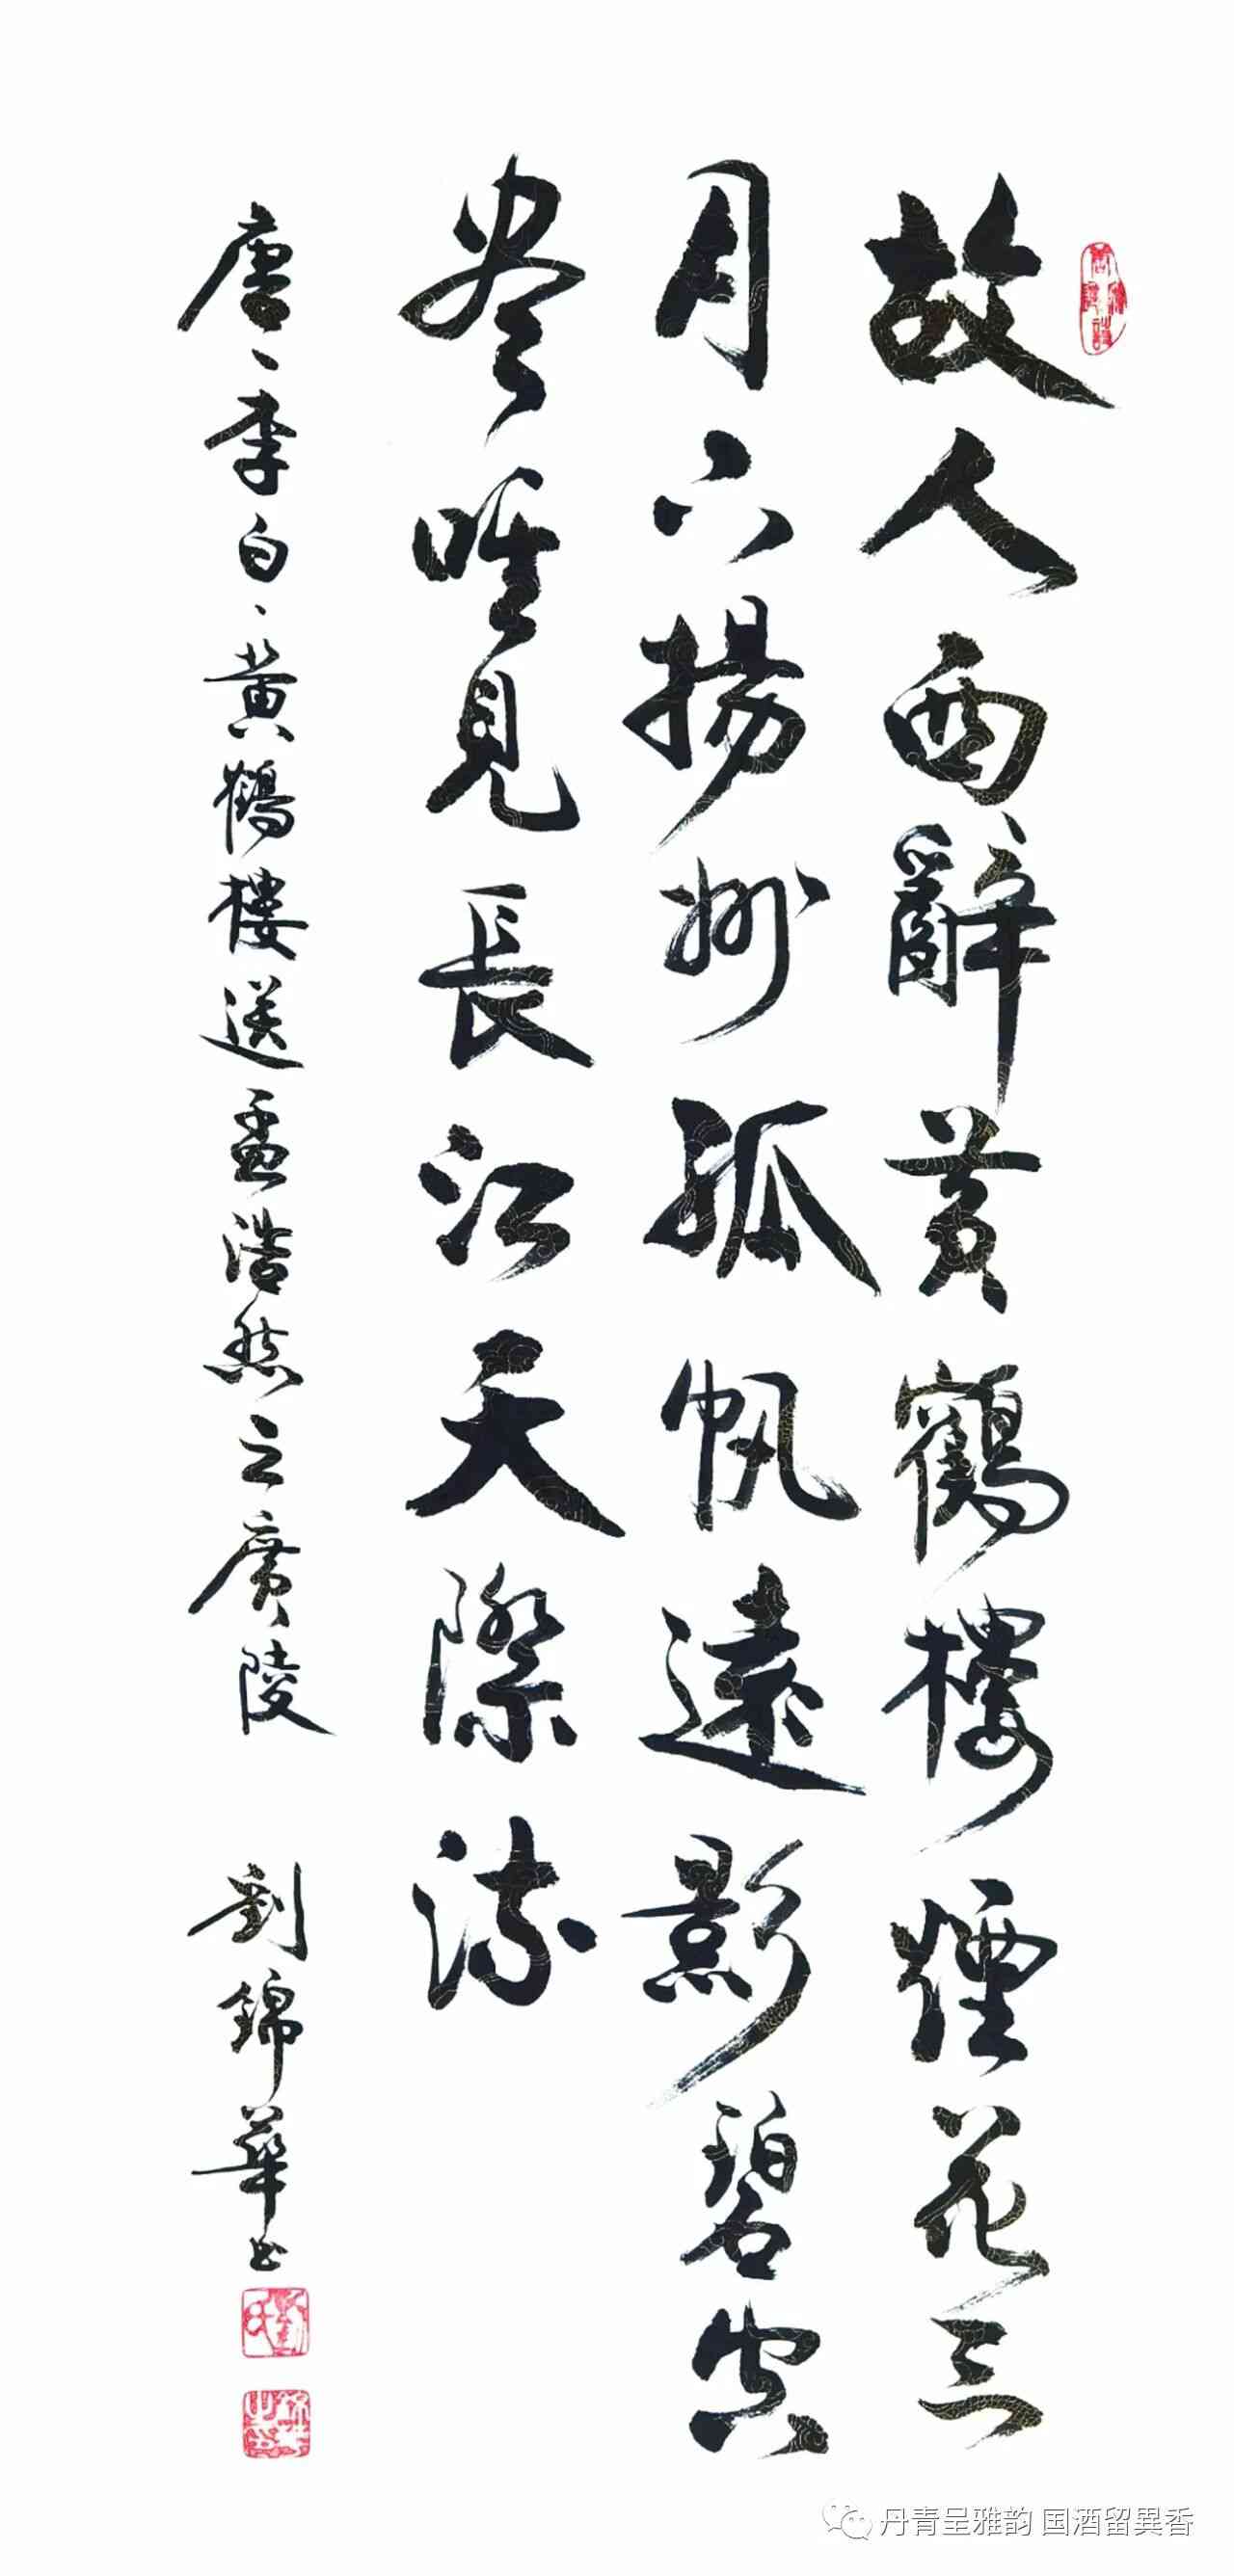 故人西辭黄鶴樓煙花三
月下揚州孤帆遠影碧空
尽唯見長江天際流
唐、李白、黄鶴樓送孟浩然之廣陵 劉錦華书
丹青呈雅韵 国酒留異香